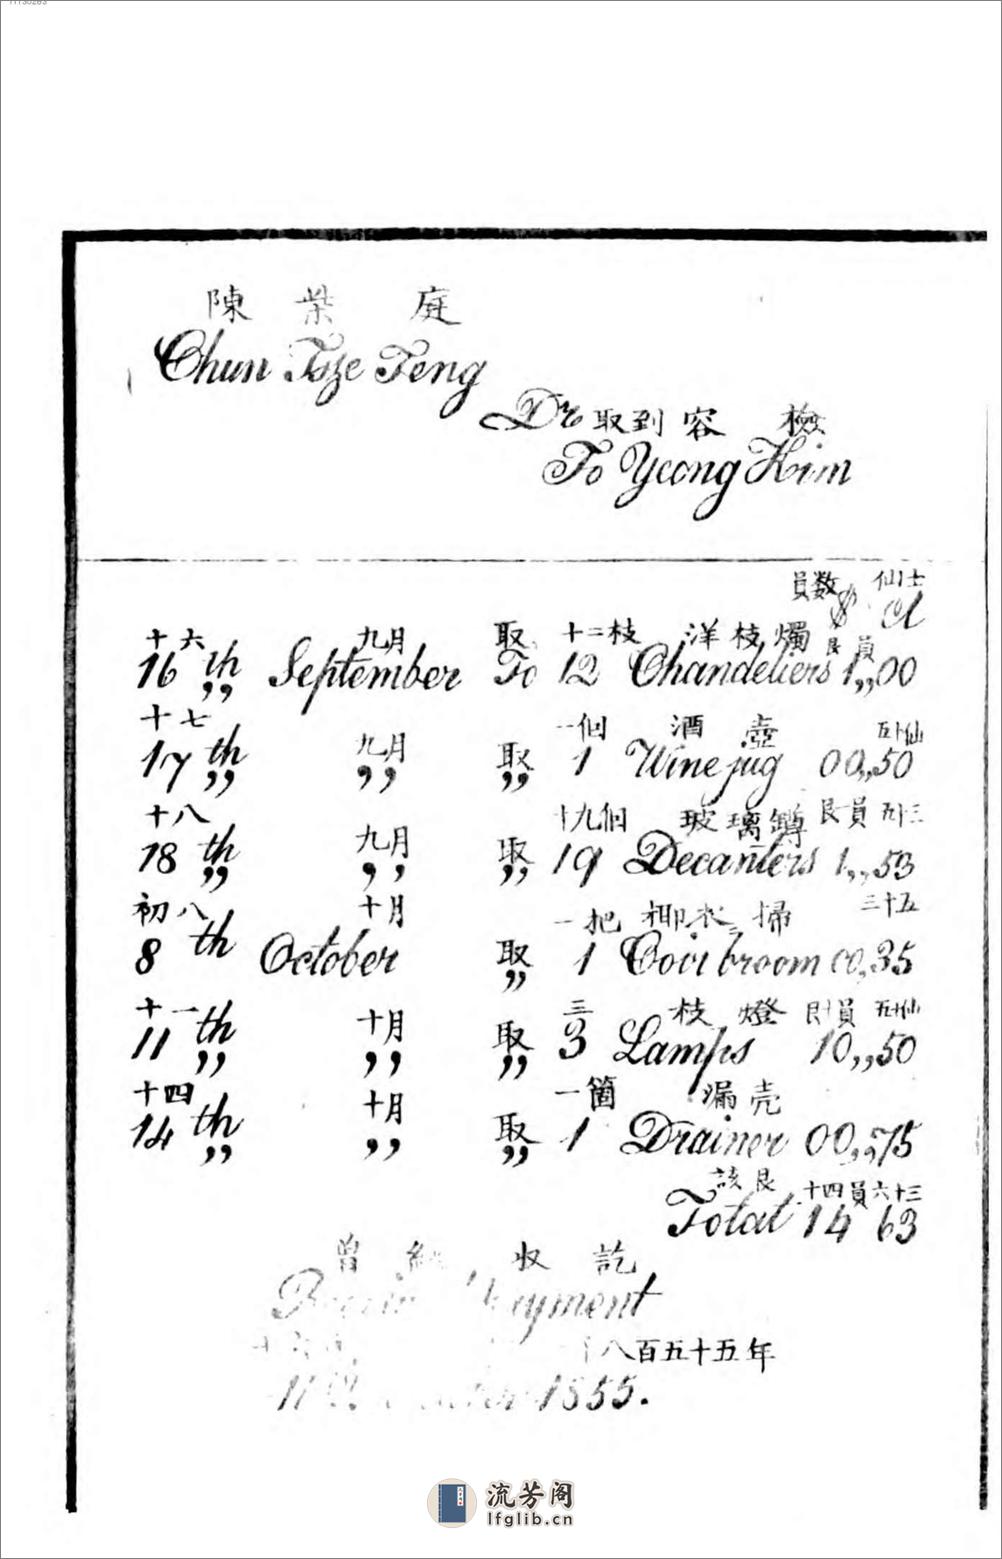 陳 枼 庭
Chun Tsze Teng
Dr 取到 容 檢
To Yeong Kim
員数 仙士
$ ct
十六 九月 取 十二枝 洋枝燭 艮 員
16th ,, September To 12 Chandeliers 1,,00
十七 九月 取 一個 酒壺 五十仙
17th ,, ,, ,, ,, 1 Wine jug 00,,50
十八 九月 取 十九個 玻璃罇 艮一員 五十三
18th ,, ,, ,, ,, 19 Decanters 1,,53
初八 十月 取 一把 椰衣掃 三十五
8th October ,, 1 Coir broom 00,,35
十一 十月 取 三 枝燈 艮十員 五十仙
11th ,, ,, ,, ,, 3 Lamps 10,,50
十四 十月 取 一箇 漏壳
14th ,, ,, ,, ,, 1 Drainer 00,,75
該艮 十四員六十三
Total 14 63
曾 經 收 訖
Payment
八百五十五年
1855.
流芳阁
lfglib.cn